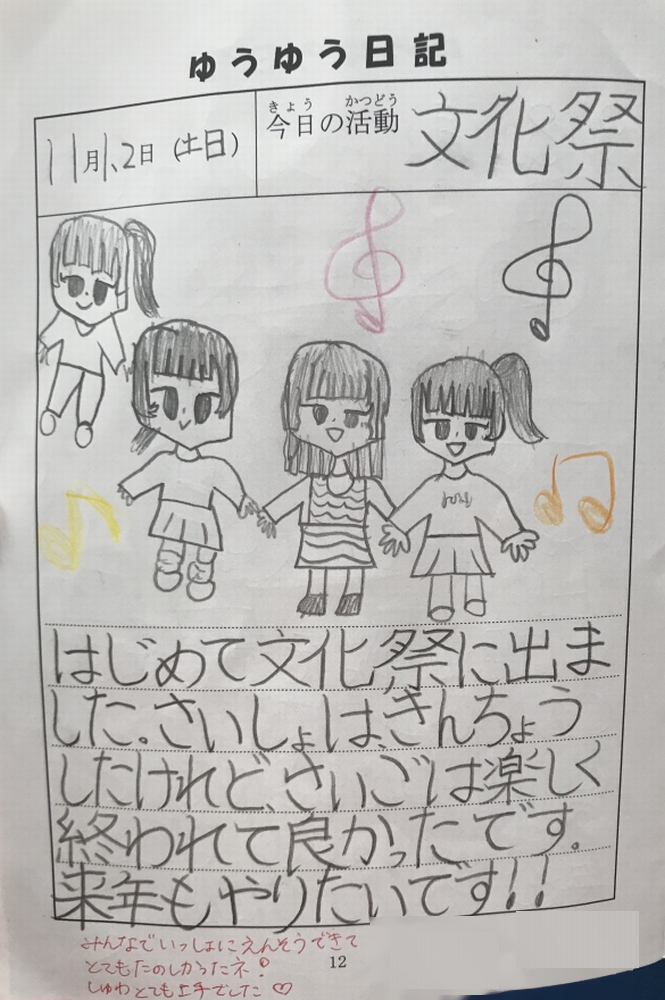 ゆうゆう日記
11月1、2日(土日)
きょう かつどう
今日の活動 文化祭
はじめて文化祭に出ま
した。さいしょは、きんちょう
したけれど、さいごは楽しく
終われて良かったです。
来年もやりたいです!!
みんなでいっしょにえんそうできて
とてもたのしかったネ!
しゅわとても上手でした♡
12